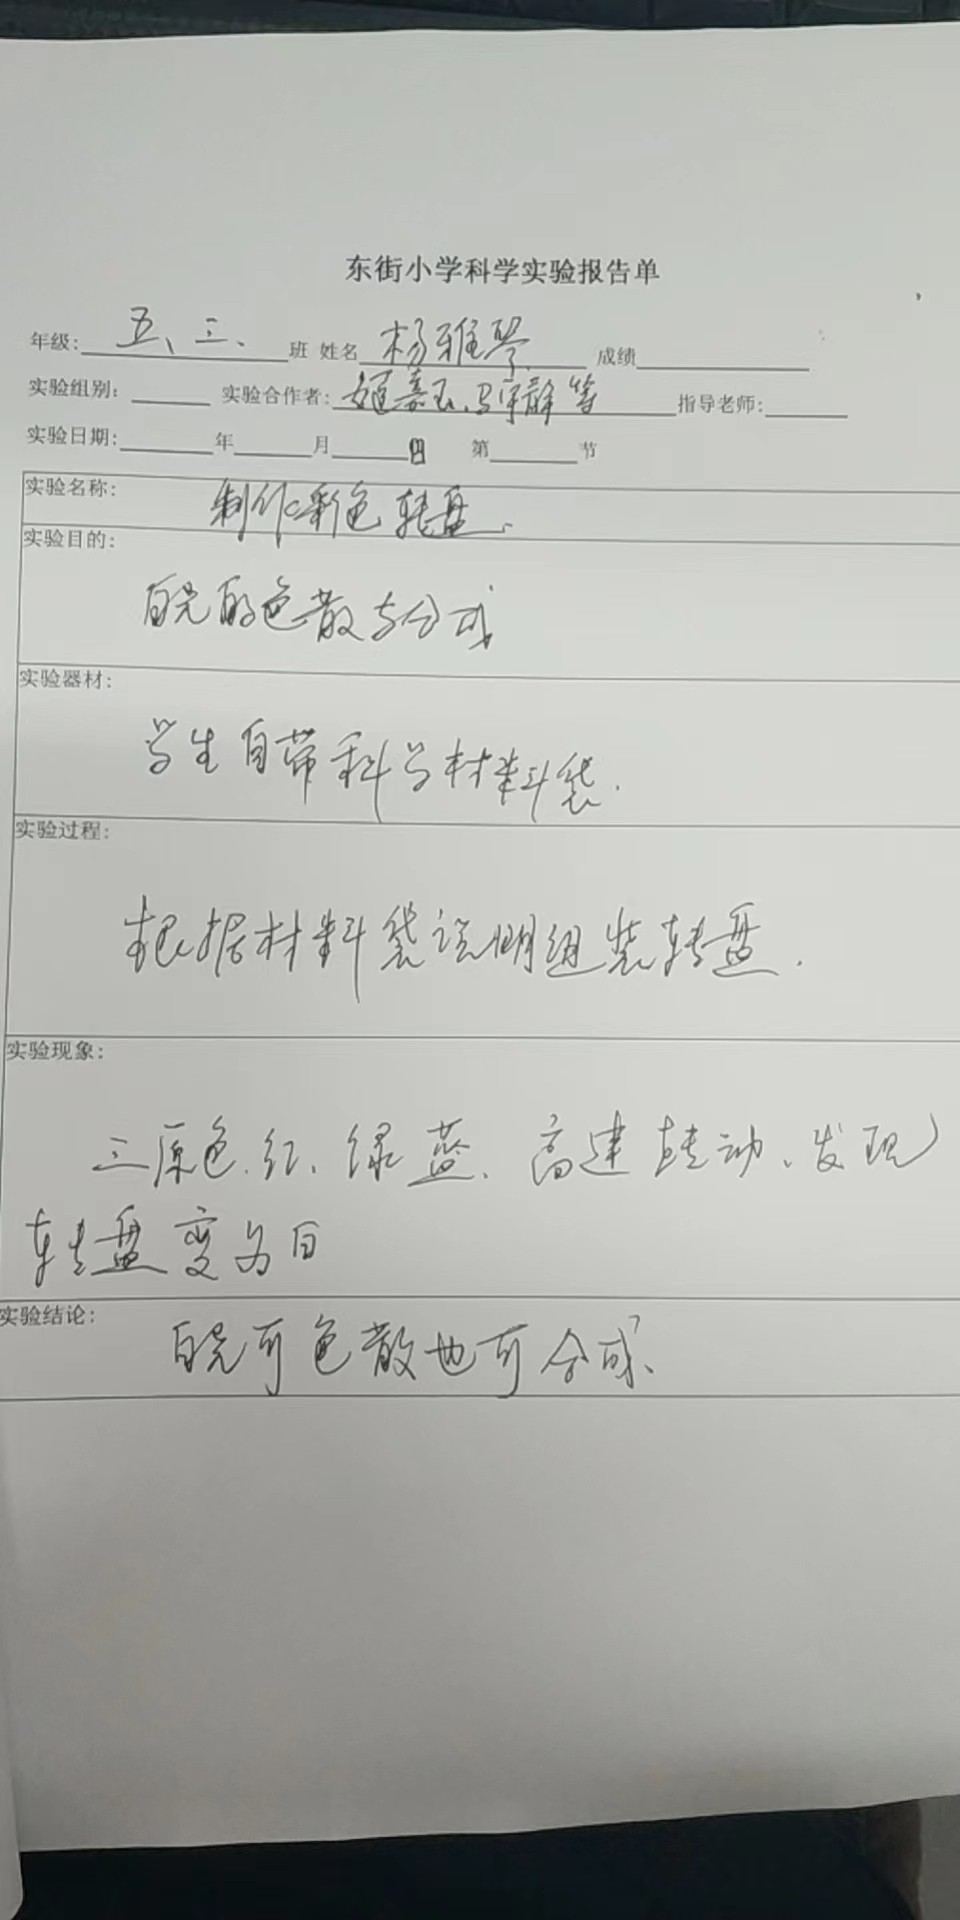 东街小学科学实验报告单
年级:五、三、班 姓名 杨雅琴 成绩
实验组别: 实验合作者: 嘉玉、马宇静等 指导老师:
实验日期: 年 月 日 第 节
实验名称: 制作彩色转盘、
实验目的:
白光的色散与合成
实验器材:
学生自带科学材料袋.
实验过程:
根据材料袋说明组装转盘.
实验现象:
三原色.红、绿蓝、高速转动、发现
转盘变为白
实验结论: 白光可色散也可合成、